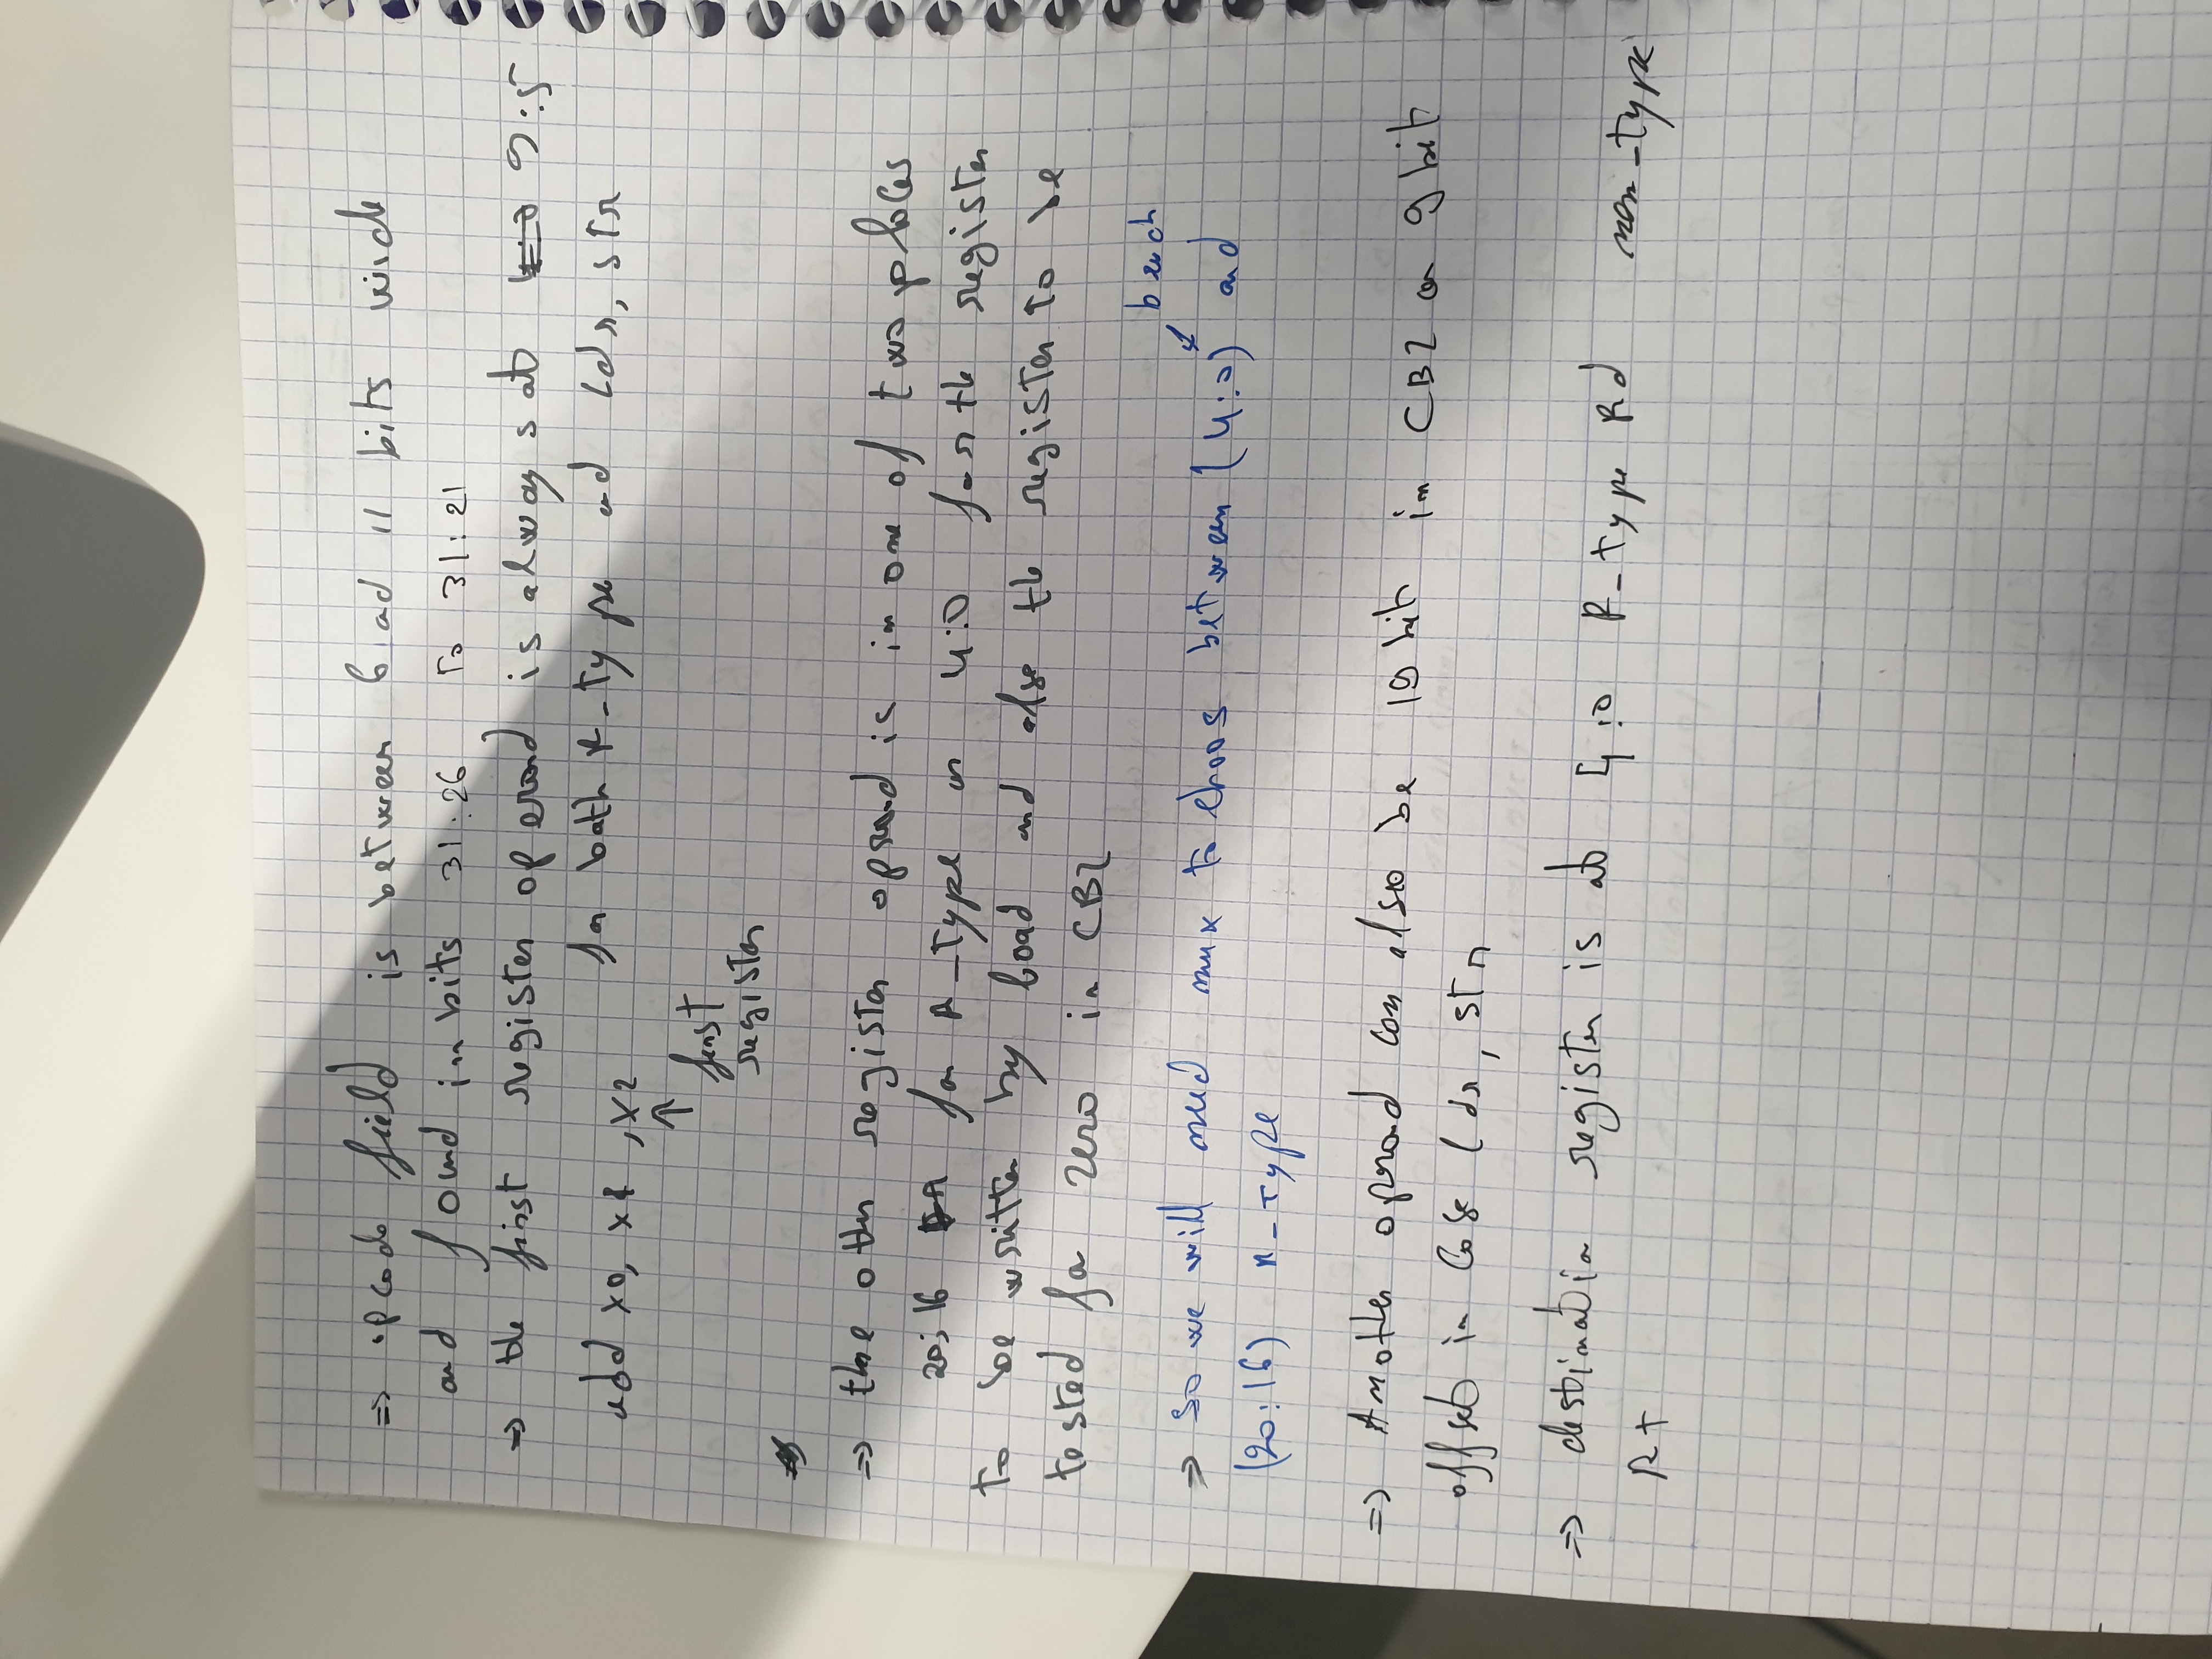 => opcode field is between 6 ad 11 bits wide
and found in bits 31:26 to 31:21
=> the first register operand is always at 9:5
for both R-type ad ldr, str
add x0, x1, x2
↑
first
register
=> the other register oprand is in one of two places
20:16 for R-type or 4:0 for the register
to be written by load and also the register to be
tested for zero in CBZ
branch
=> so we will need mux to choos between (4:0) and
(20:16) R-type
=> Another oprand can also be 19 bit in CBZ or 9 bit
offset in case ldr, str
=> destination register is at 4:0 R-type Rd non-type
Rt